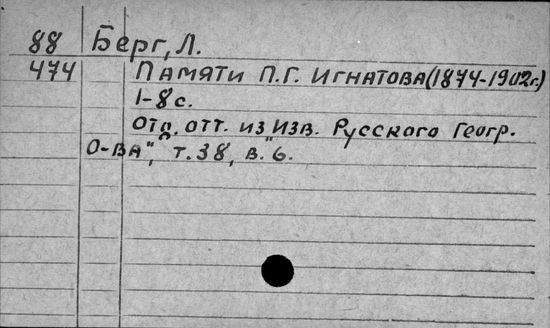 88 Берг, Л.
474 Памяти П.Г. Игнатова (1874-1902г.)
1-8 с.
Отд. отт. из "Изв. Русского Геогр.
О-ва", т. 38, в. 6.